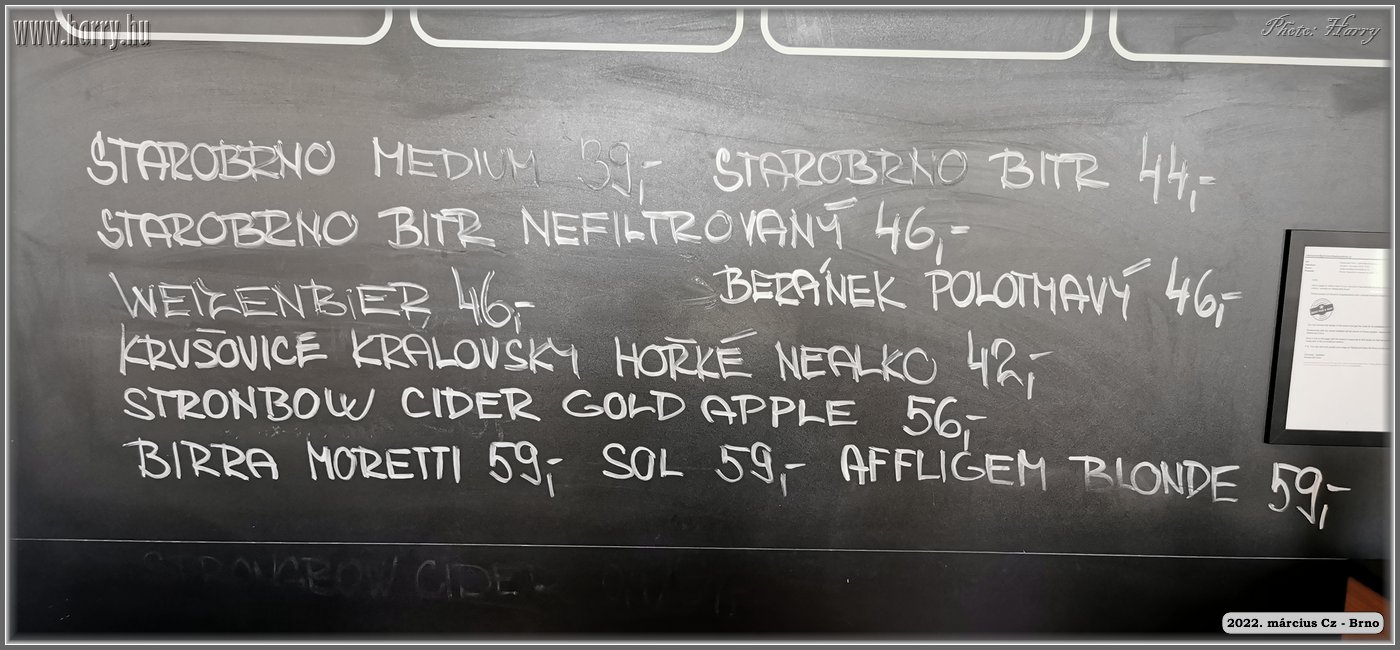 www.harry.hu
Photo: Harry
STAROBRNO MEDIUM 39,- STAROBRNO BITR 44,-
STAROBRNO BITR NEFILTROVANÝ 46,-
WEIZENBIER 46,- BERÁNEK POLOTMAVÝ 46,-
KRUŠOVICE KRALOVSKY HOŘKÉ NEALKO 42,-
STRONBOW CIDER GOLD APPLE 56,-
BIRRA MORETTI 59,- SOL 59,- AFFLIGEM BLONDE 59,-
STRONGBOW CIDER
2022. március Cz - Brno